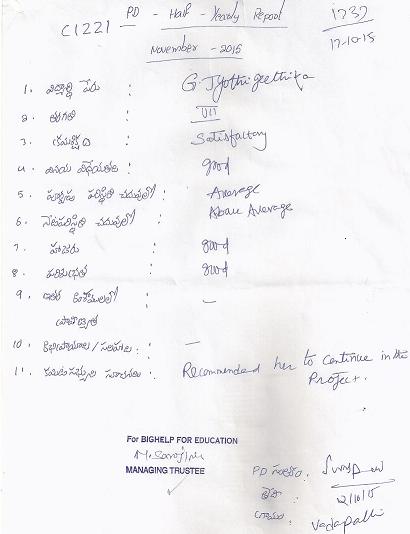 C1221 PD - Half - Yearly Report 1737
17-10-15
November - 2015
1. విద్యార్థి పేరు : G. Jyothi geethika
2. తరగతి : VII
3. క్రమశిక్షణ : Satisfactory
4. వినయ విధేయతలు : good
5. పూర్వపు పరిస్థితి చదువులో : Average
6. నేటి పరిస్థితి చదువులో : Above Average
7. హాజరు : good
8. పరిశుభ్రత : good
9. ఇతర అంశములలో : —
10. అభిప్రాయాలు / సలహాలు : —
11. కమిటీ సభ్యుల సూచనలు : Recommended her to continue in the
Project.
For BIGHELP FOR EDUCATION
M. Sarojini
MANAGING TRUSTEE
PD సంతకం :
తేది : 12/10/15
గ్రామం : Vadapalli